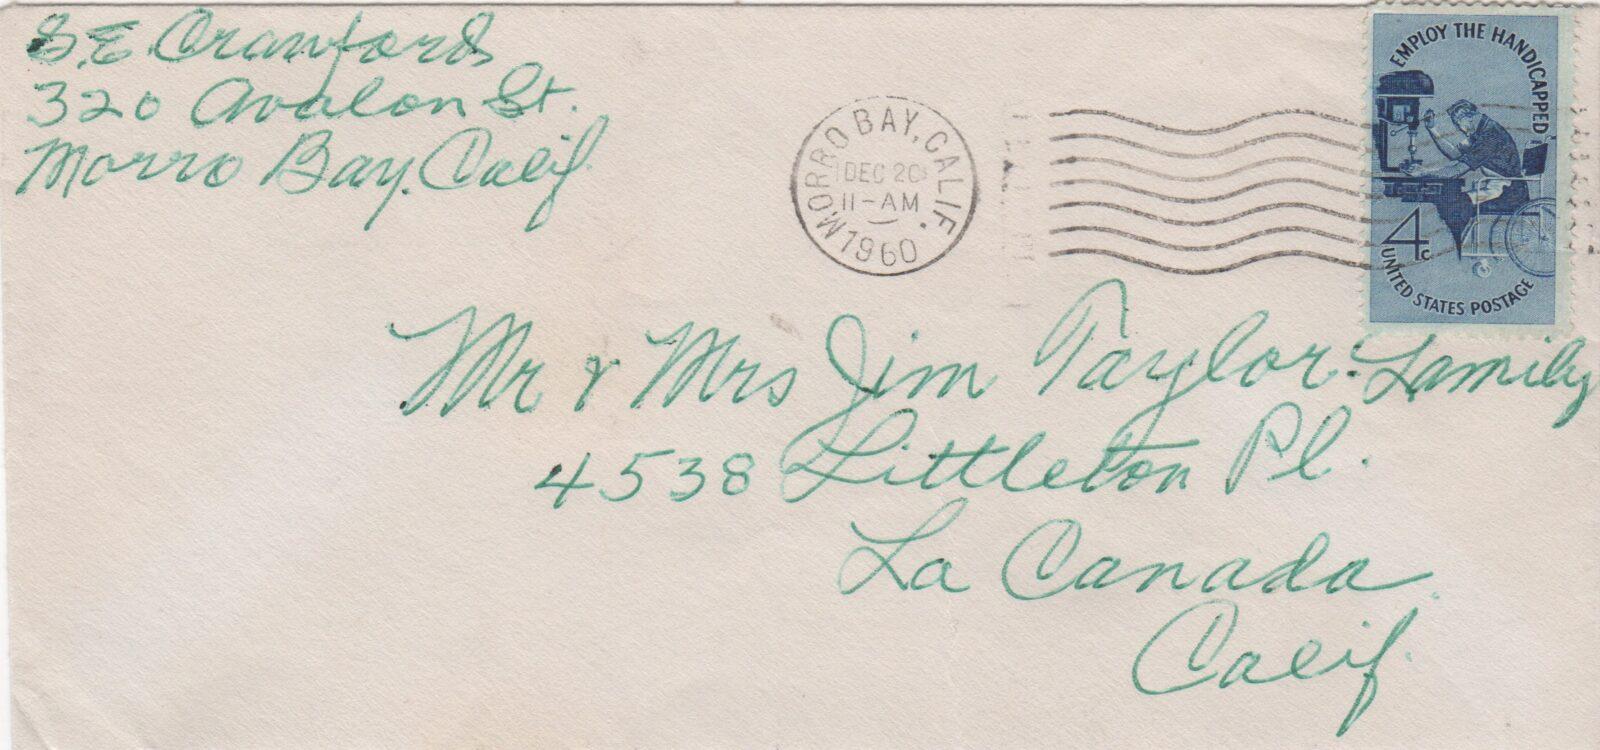 S.E. Cranford
320 Avalon St.
Morro Bay, Calif
MORRO BAY, CALIF.
DEC 20
11-AM
1960
EMPLOY THE HANDICAPPED
4c
UNITED STATES POSTAGE
Mr & Mrs Jim Taylor Family
4538 Littleton Pl.
La Canada
Calif.